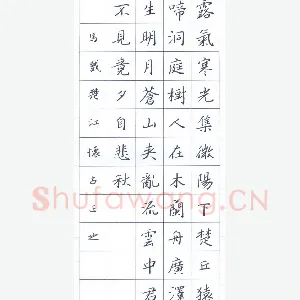 露氣寒光集微陽下楚丘猿
啼洞庭樹人在木蘭舟廣澤
生明月蒼山夾亂流雲中君
不見竟夕自悲秋
馬戴楚江懷古
Shufawang.CN